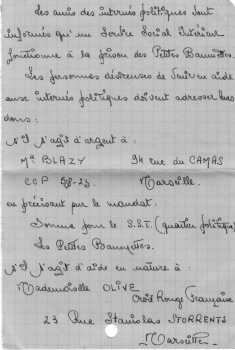 Les amis des internés politiques sont
informés qu'un Service Social Intérieur
fonctionne à la prison des Petites Baumettes.
Les personnes désireuses de venir en aide
aux internés politiques doivent adresser leurs
dons:
s'il s'agit d'argent à:
Me BLAZY 94 rue du CAMAS
CCP Marseille.
en précisant sur le mandat:
Somme pour le S.S.I. (quartier politique)
Les Petites Baumettes.
s'il s'agit d'aide en nature à:
Mademoiselle OLIVE
Croix Rouge Française
23 Rue Stanislas TORRENTS
Marseille.